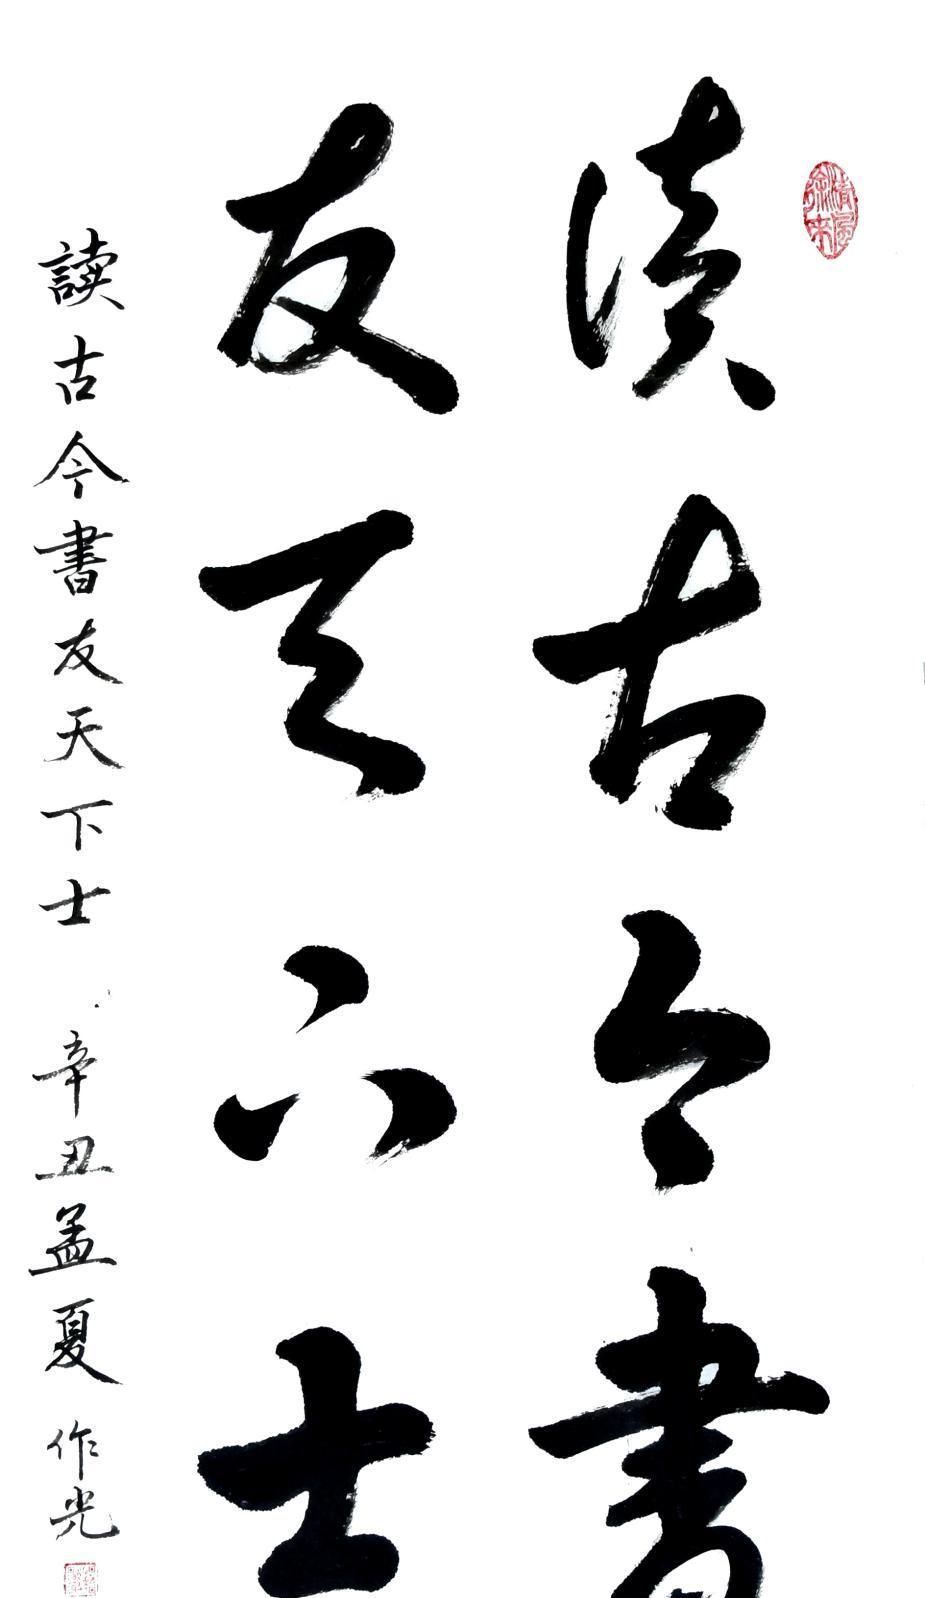 读古今書
友天下士
讀古今書友天下士 辛丑孟夏 作光
清風徐來